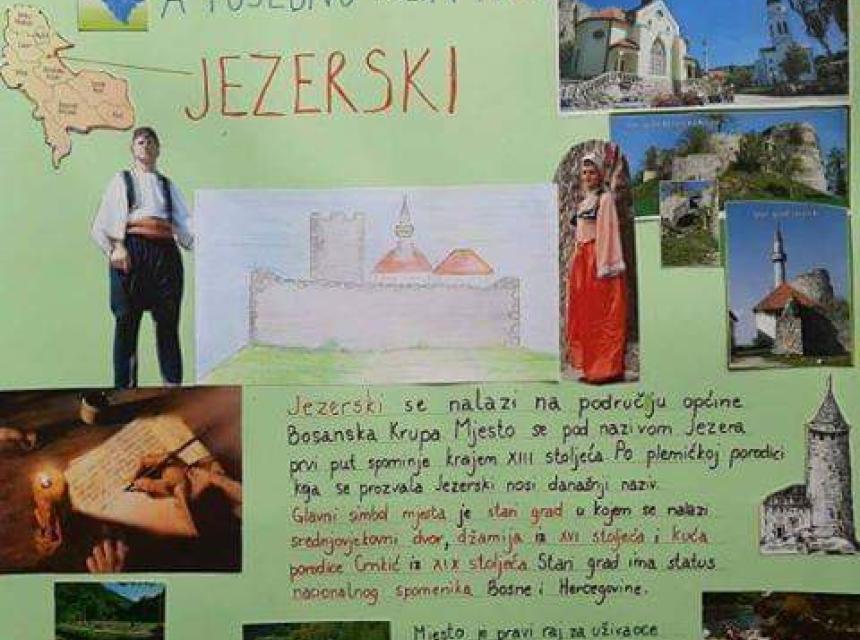 A POSEBNO
JEZERSKI
Jezerski se nalazi na području općine
Bosanska Krupa Mjesto se pod nazivom Jezera
prvi put spominje krajem XIII stoljeća Po plemičkoj porodici
koja se prozvala Jezerski nosi današnji naziv.
Glavni simbol mjesta je stari grad u kojem se nalazi
srednjovjekovni dvor, džamija iz XVI stoljeća i kuća
porodice Crnkić iz XIX stoljeća Stari grad ima status
nacionalnog spomenika Bosne i Hercegovine.
Mjesto je pravi raj za uživaoce